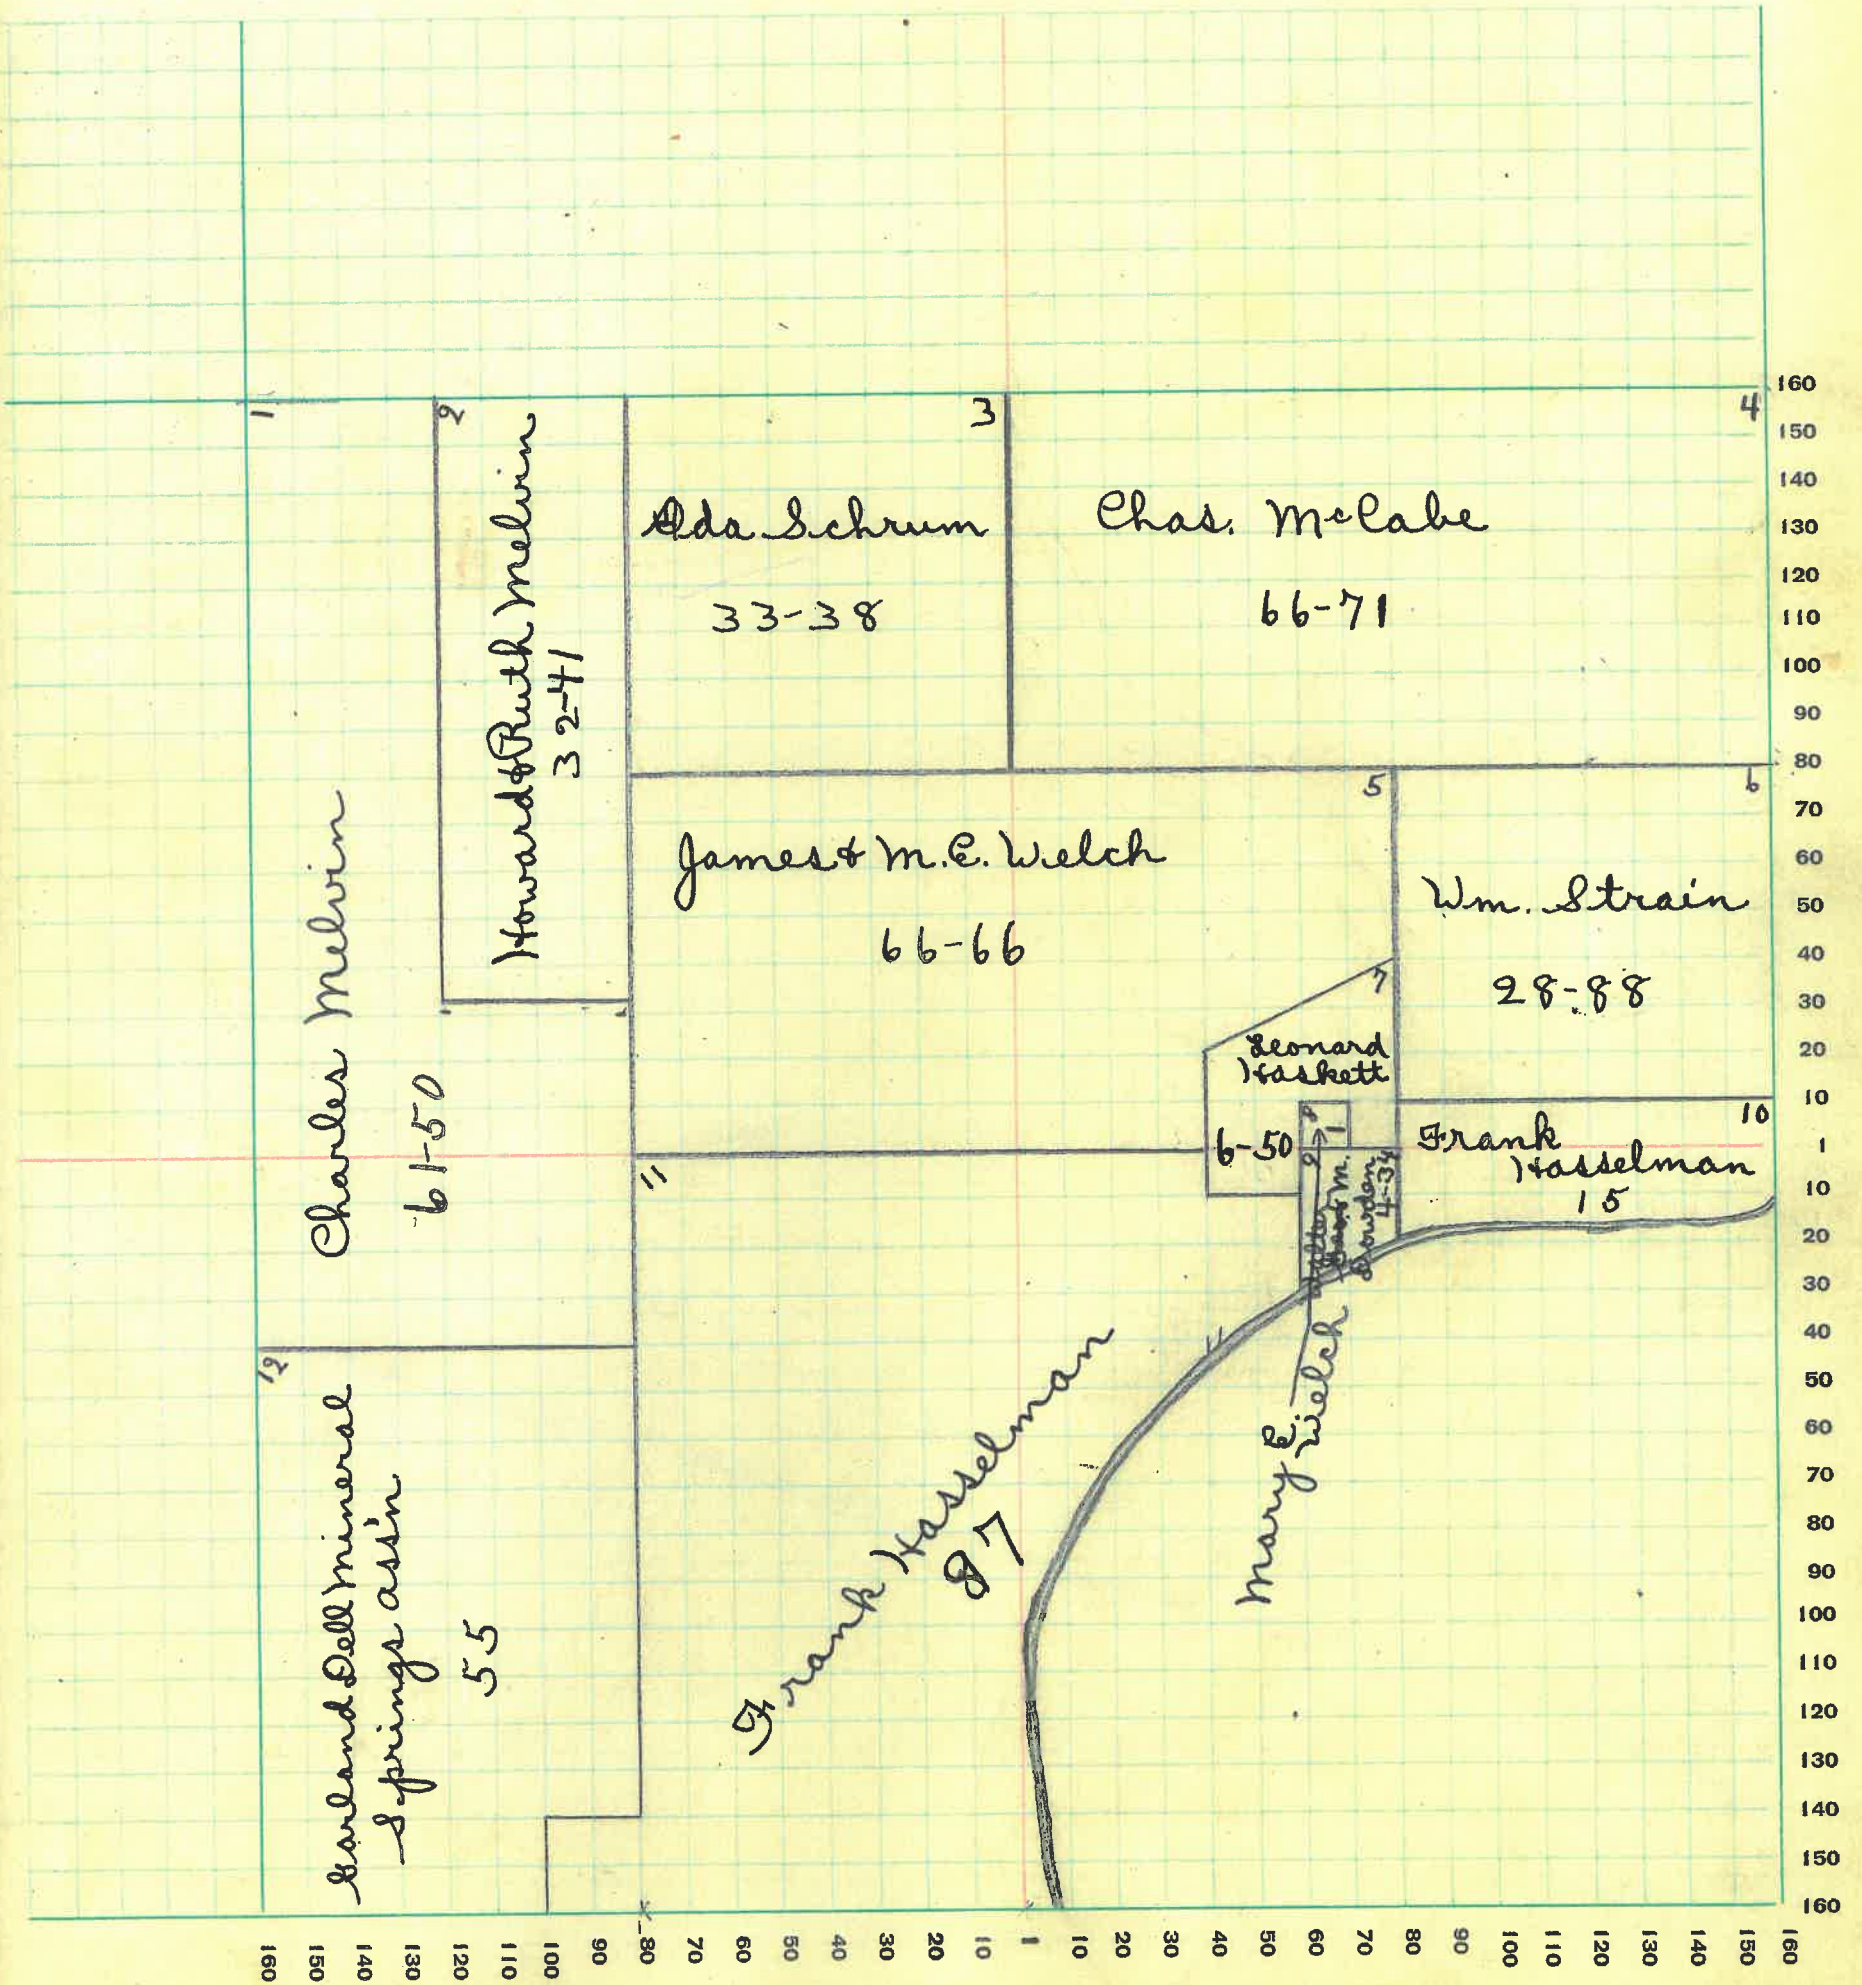 1
2
3
4
Charles Melvin
61-50
Howard & Ruth Melvin
32-41
Ada Schrum
33-38
Chas. McCabe
66-71
5
6
James & M.E. Welch
66-66
Wm. Strain
28-88
7
Leonard
Haskett
6-50
8
1
9
Walter
M.
Dowden
4-34
10
Frank
Hasselman
15
11
Frank Hasselman
87
Mary E.
Welch
12
Garland Dell Mineral
Springs ass'n
55
160
150
140
130
120
110
100
90
80
70
60
50
40
30
20
10
1
10
20
30
40
50
60
70
80
90
100
110
120
130
140
150
160
160 150 140 130 120 110 100 90 80 70 60 50 40 30 20 10 1 10 20 30 40 50 60 70 80 90 100 110 120 130 140 150 160